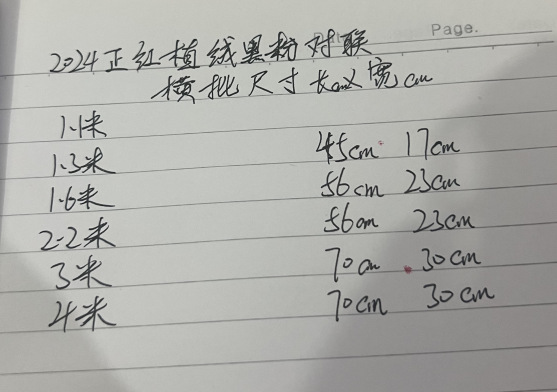 Page.
2024正红植绒黑粉对联
横批尺寸长cmX宽cm
1.1米
1.3米 45cm 17cm
1.6米 56cm 23cm
2.2米 56cm 23cm
3米 70cm 30cm
4米 70cm 30cm